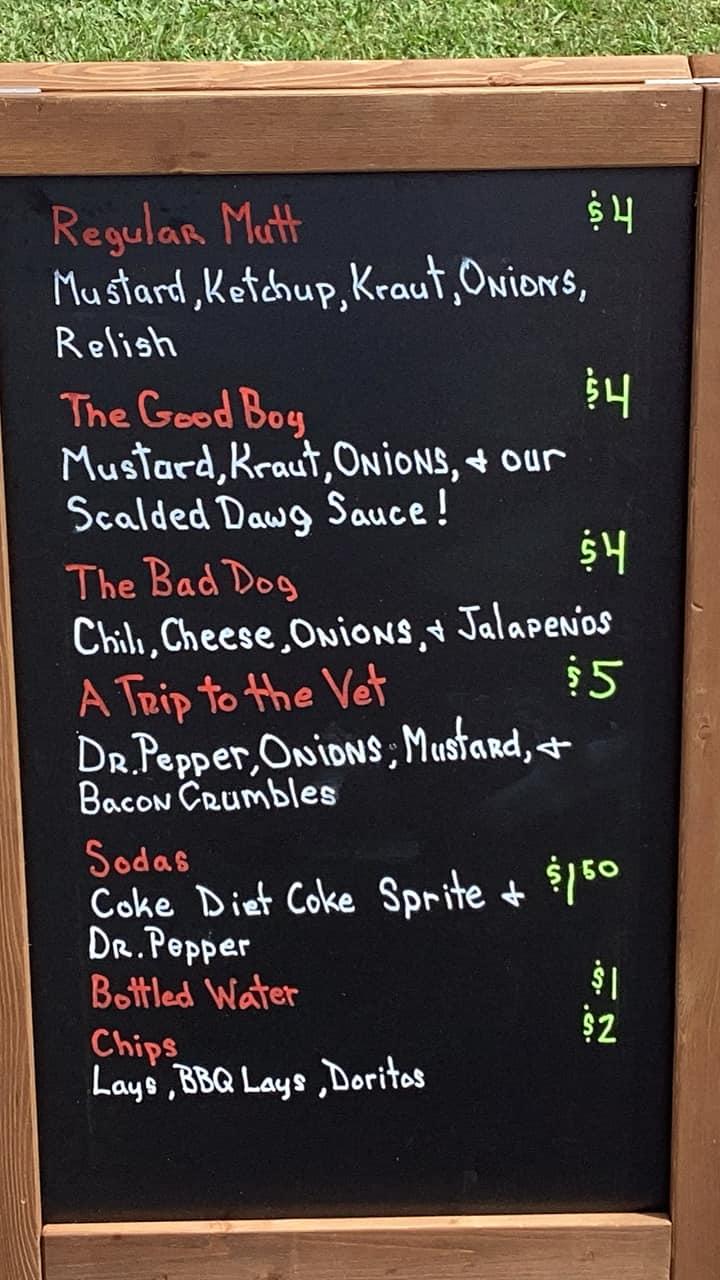 Regular Mutt $4
Mustard, Ketchup, Kraut, Onions,
Relish
The Good Boy $4
Mustard, Kraut, Onions, & our
Scalded Dawg Sauce!
The Bad Dog $4
Chili, Cheese, Onions, & Jalapenos
A Trip to the Vet $5
Dr. Pepper, Onions, Mustard, &
Bacon Crumbles
Sodas
Coke Diet Coke Sprite & $1 50
Dr. Pepper
Bottled Water $1
Chips $2
Lays, BBQ Lays, Doritos